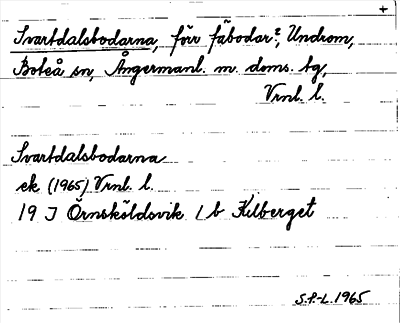 +
Svartdalsbodarna, förr fäbodar?, Undrom,
Boteå sn, Ångermanl. m. doms. tg,
Vrnl. l.
Svartdalsbodarna
ek (1965) Vrnl. l.
19 J Örnsköldsvik 1 b Kilberget
S.P-L. 1965